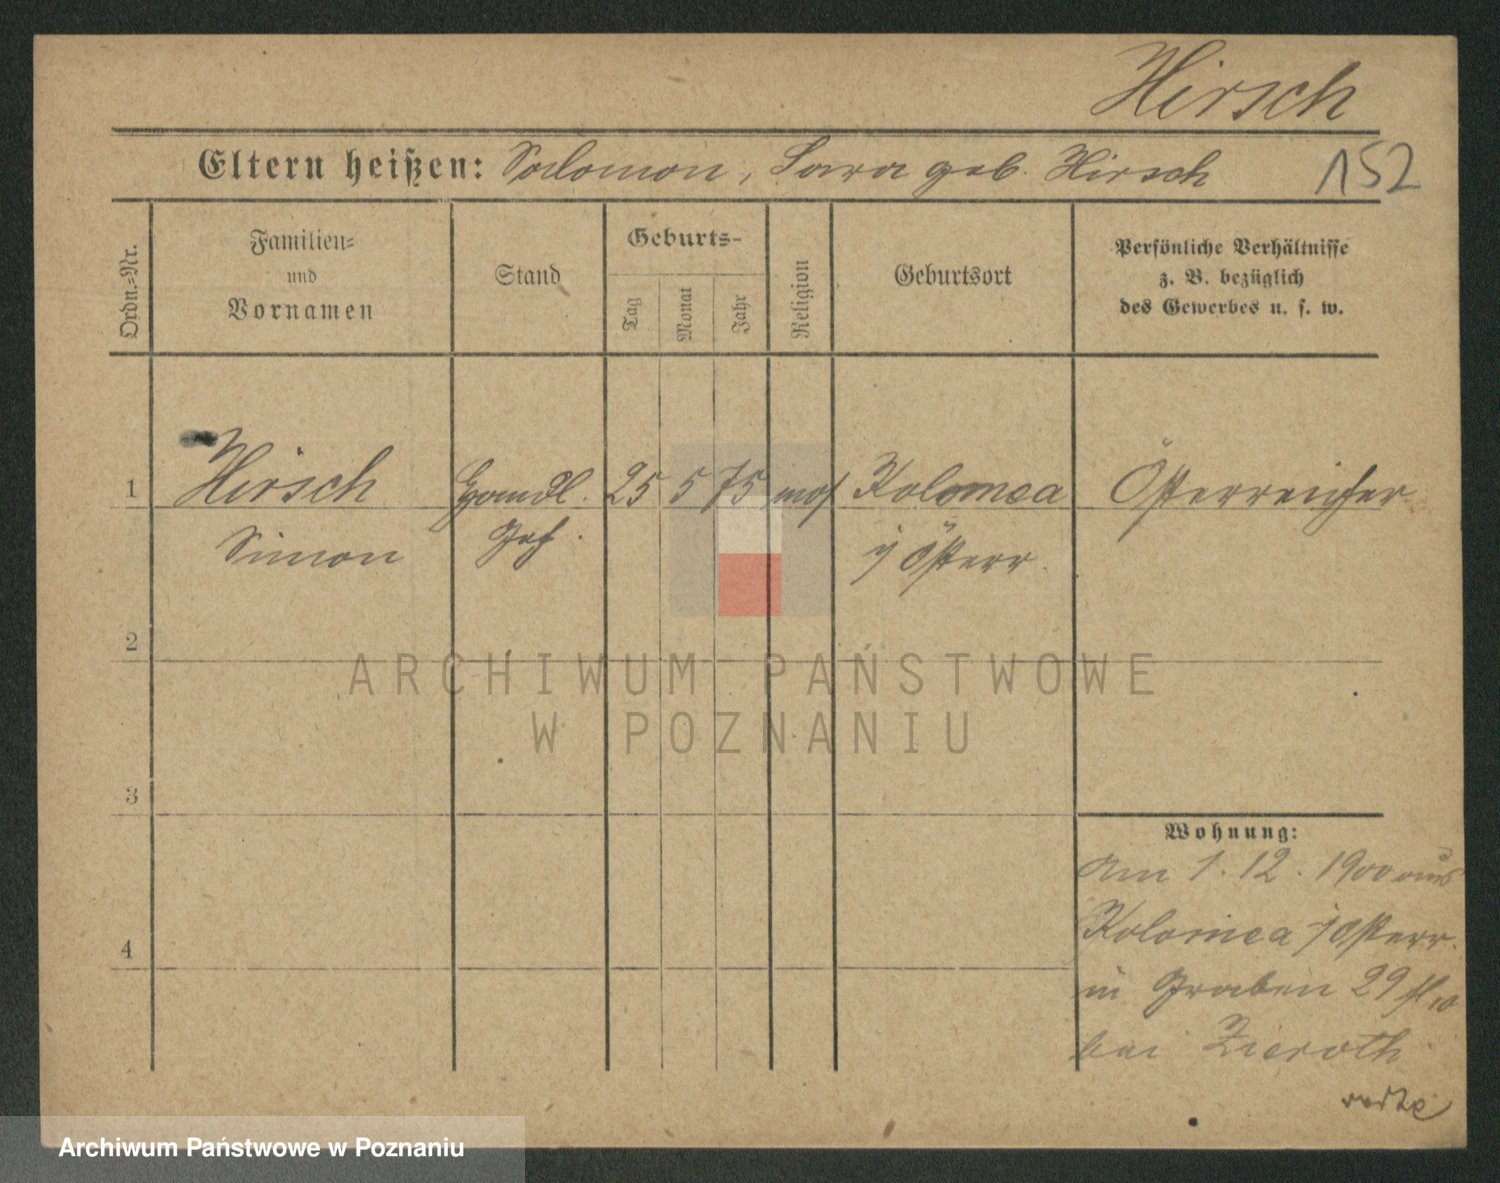 Hirsch
Eltern heißen: Salomon, Sara geb. Hirsch 152
Ordn.-Nr.
Familien-
und
Vornamen
Stand
Geburts-
Tag
Monat
Jahr
Religion
Geburtsort
Persönliche Verhältnisse
z. B. bezüglich
des Gewerbes u. s. w.
1 Hirsch Handl. 25 5 75 mos Kolomea Österreicher
Simon Geh. i/ Österr
2
ARCHIWUM PAŃSTWOWE
W POZNANIU
3
Wohnung:
Am 1. 12. 1900 aus
Kolomea i/Österr.
4
in Graben 29
bei Zieroth
Archiwum Państwowe w Poznaniu